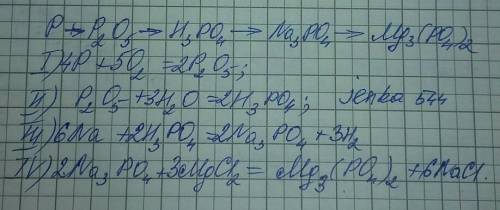 P → P₂O₅ → H₃PO₄ → Na₃PO₄ → Mg₃(PO₄)₂
I) 4P + 5O₂ = 2P₂O₅;
II) P₂O₅ + 3H₂O = 2H₃PO₄; jenka 544
III) 6Na + 2H₃PO₄ = 2Na₃PO₄ + 3H₂
IV) 2Na₃PO₄ + 3MgCl₂ = Mg₃(PO₄)₂ + 6NaCl.